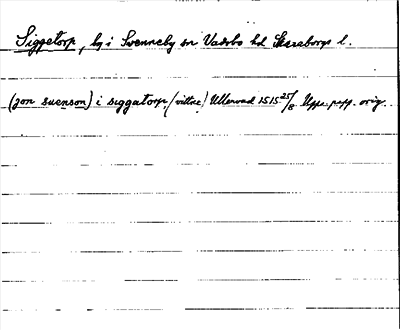 Siggetorp, by i Svenneby sn Vadsbo hd Skaraborgs l.
(jon suenson) i siggatorp (vittne) Ullervad 1515 25/8 Upps. papp. orig.